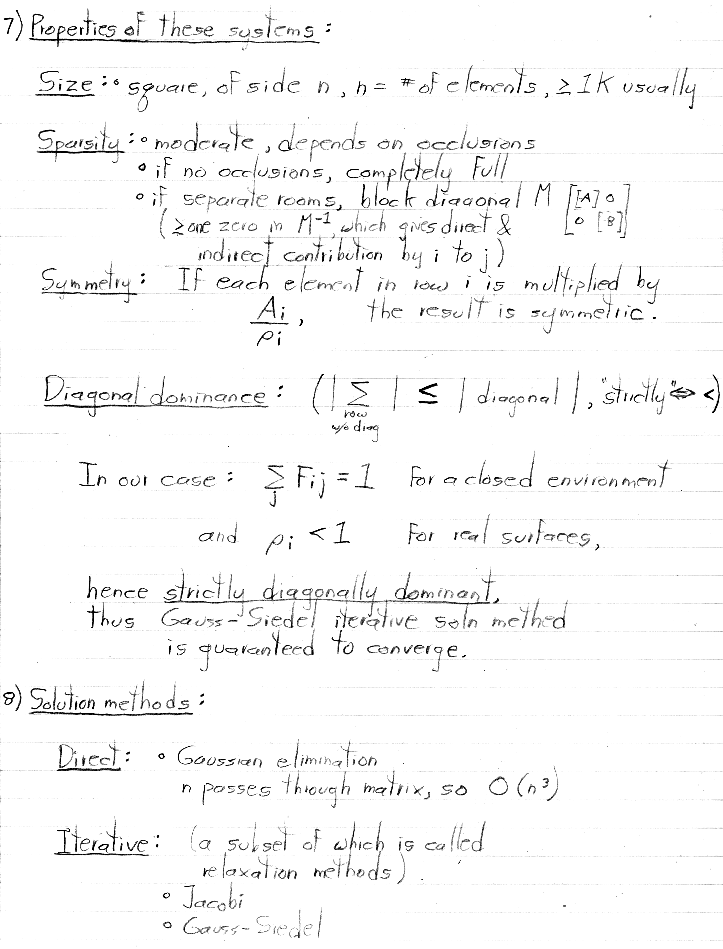 7) Properties of these systems :
Size : • square, of side n, n = # of elements, ≥ 1K usually
Sparsity : • moderate, depends on occlusions
• if no occlusions, completely full
• if separate rooms, block diagonal M [[A] 0
0 [B]]
(≥ one zero in M⁻¹, which gives direct &
indirect contribution by i to j)
Symmetry : If each element in row i is multiplied by
Ai/ρi, the result is symmetric.
Diagonal dominance : (| Σ | ≤ | diagonal |, "strictly" ⇔ <)
row
w/o diag
In our case : Σ Fij = 1 for a closed environment
j
and ρi < 1 for real surfaces,
hence strictly diagonally dominant,
thus Gauss-Siedel iterative soln method
is guaranteed to converge.
8) Solution methods :
Direct : • Gaussian elimination
n passes through matrix, so O(n³)
Iterative : (a subset of which is called
relaxation methods)
• Jacobi
• Gauss-Siedel